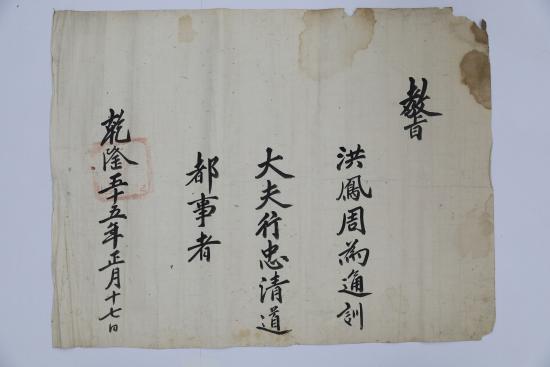 敎旨
洪鳳周爲通訓
大夫行忠清道
都事者
乾隆五十五年正月十七日